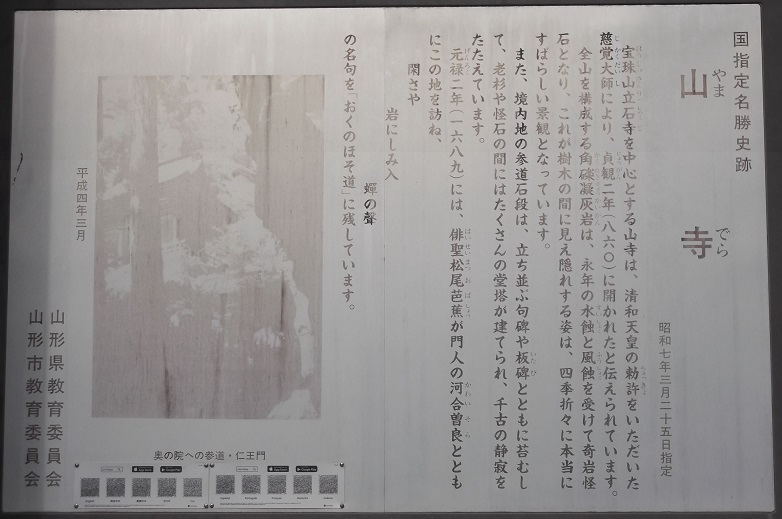 国指定名勝史跡
山寺
やまでら
昭和七年三月二十五日指定
宝珠山立石寺を中心とする山寺は、清和天皇の勅許をいただいた
慈覚大師により、貞観二年(八六〇)に開かれたと伝えられています。
全山を構成する角礫凝灰岩は、永年の水蝕と風蝕を受けて奇岩怪
石となり、これが樹木の間に見え隠れする姿は、四季折々に本当に
すばらしい景観となっています。
また、境内地の参道石段は、立ち並ぶ句碑や板碑とともに苔むし
て、老杉や怪石の間にはたくさんの堂塔が建てられ、千古の静寂を
たたえています。
元禄二年(一六八九)には、俳聖松尾芭蕉が門人の河合曽良ととも
にこの地を訪ね、
閑さや
岩にしみ入
蟬の聲
の名句を「おくのほそ道」に残しています。
平成四年三月
山形県教育委員会
山形市教育委員会
奥の院への参道・仁王門